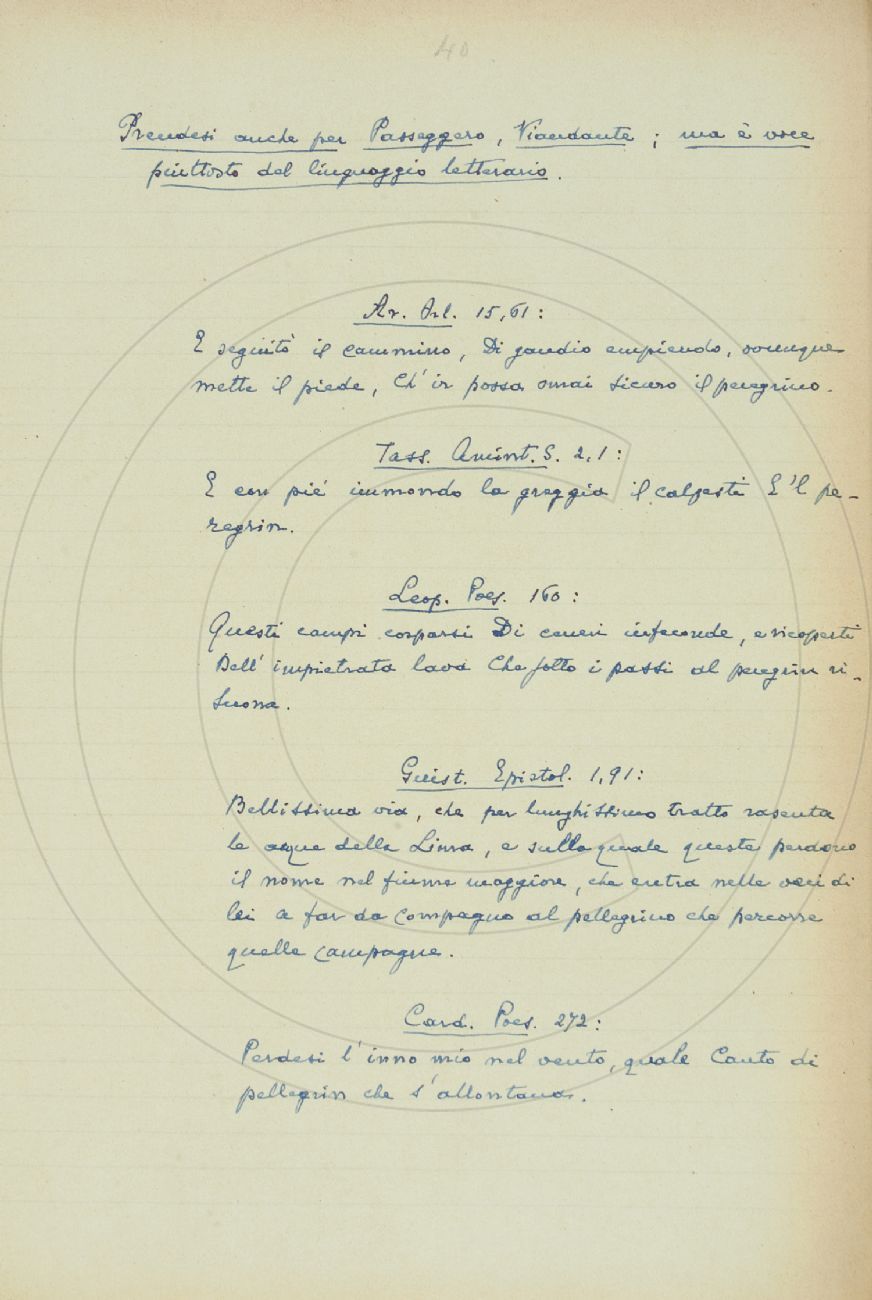 40
Prendesi anche per Passeggero, Viandante; ma è voce
piuttosto del linguaggio letterario.
Ar. Orl. 15,61:
E seguitò il cammino, Di gaudio empiendo, ovunque
mette il piede, Ch' ir possa omai sicuro il peregrino.
Tass. Amint. S. 2,1:
E con piè immondo la greggia il calpesti E 'l pe-
regrin.
Leop. Poes. 160:
Questi campi cosparsi Di ceneri infeconde, e ricoperti
Dell' impietrata lava Che sotto i passi al peregrin ri-
suona.
Giust. Epistol. 1,91:
Bellissima via, che per lunghissimo tratto rasenta
le acque della Lima, e sulla quale queste perdono
il nome nel fiume maggiore, che entra nelle veci di
lei a far da compagno al pellegrino che percorre
quelle campagne.
Card. Poes. 272:
Perdesi l' inno mio nel vento, quale Canto di
pellegrin che s' allontana.